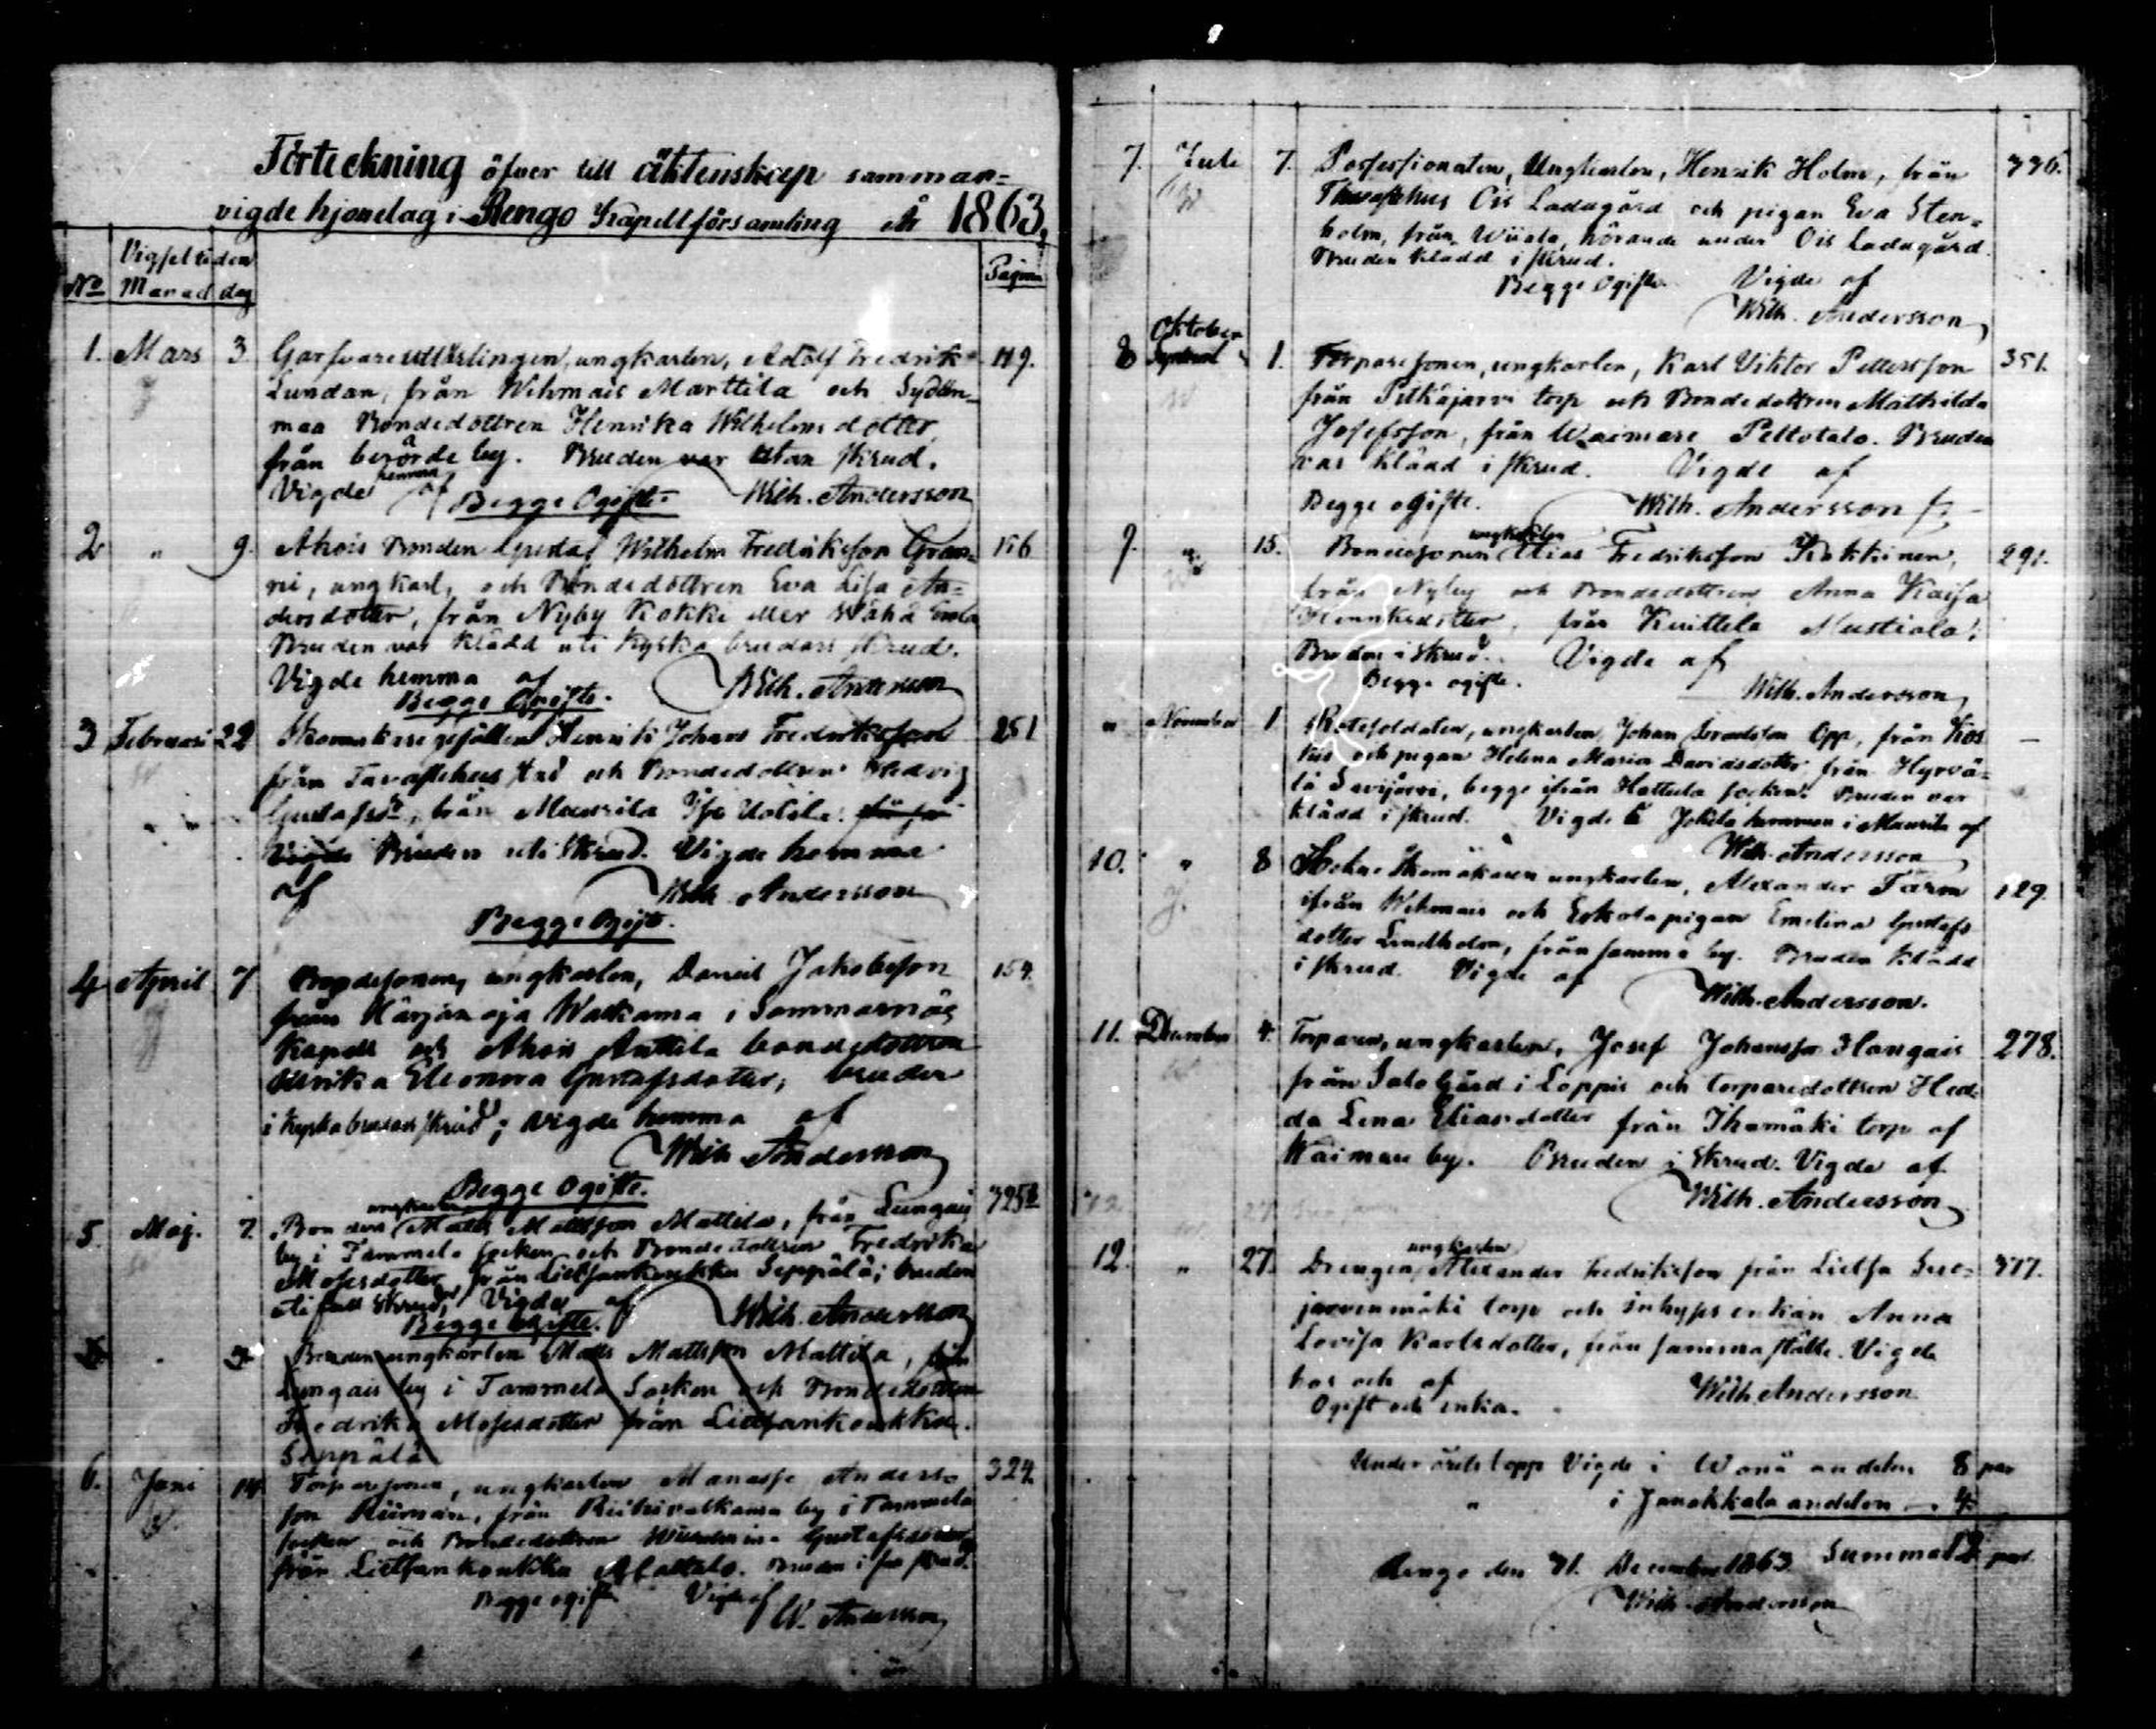 Förteckning öfver till äktenskap samman=
vigde hjonelag i Rengo Kapellförsamling År 1863.
Vigseltiden
No Månad dag
Pagina
1. Mars 3 Garfvareutlärlingen, ungkarlen, Adolf Fredrik 119.
Lundan, från Wehmais Marttila och Sydän=
maa Bondedottren Henrika Wilhelmsdotter,
från berörde by. Bruden var utan skrud.
Vigde hemma af Begge Ogifte Wilh. Andersson
2 " 9. Ahois Bonden Gustaf Wilhelm Fredriksson Gran=
ni, ungkarl, och Bondedottren Eva Lisa An=
dersdotter, från Nyby Kokki eller Wähä
Bruden var klädd uti kyska brudars skrud.
Vigde hemma af Wilh. Andersson
Begge Ogifte.
3 Februari 22 Skomakaregesällen Henrik Johan Fredriksson 251
från Tavastehus stad och Bondedottren Hedvig
från Maurila Iso Uotila.
Vigde Bruden uti Skrud. Vigde hemma
af Wilh. Andersson
Begge Ogift.
4 April 7 Bondesonen, ungkarlen, Daniel Jakobsson 154.
från Härjänoja Walkama i Sommarnäs
Kapell och Ahois Anttila bondedottren
Ulrika Eleonora Gustafsdotter; bruden
i kyska brudars skrud; Vigde hemma af
Wilh. Andersson
Begge Ogifte.
5. Maj. 7. Bonden ungkarlen Matts Mattsson Mattila, från Lungais 325
by i Tammela socken och Bondedottren Fredrika
Mosesdotter, från Lietsankoukku Seppälä; bruden
uti full skrud, Vigde af Wilh. Andersson
Begge Ogifte.
Bonden ungkarlen Matts Mattsson Mattila, från
Lungais by i Tammela Socken och Bondedottren
Fredrika Mosesdotter från Lietsankoukku
Seppälä
6. Juni 14. Torparesonen, ungkarlen Manasse Anders= 324.
son från by i Tammela
socken och Bondedottren Gustafsdotter
från Lietsankoukku Alattalo. Bruden i skrud.
Begge ogifte Vigde af W. Andersson
7. Juli 7. Possessionaten, Ungkarlen, Henrik Holm, från 336.
Tavastehus Ois Ladugård och pigan Eva Sten=
holm, från Wiiala, hörande under Ois Ladugård.
Bruden klädd i skrud.
Begge Ogifte. Vigde af
Wilh. Andersson
Oktober
8 1. Torparesonen, ungkarlen, Karl Viktor Pettersson 351.
från Pitkäjärvi torp och Bondedottren Mathilda
Josefsson, från Waimare Peltotalo. Bruden
var klädd i skrud. Vigde af
Begge ogifte. Wilh. Andersson
9. " 15. Bondesonen ungkarlen Elias Fredriksson Kokkinen, 291.
från Nyby och Bondedottren Anna Kaisa
Henriksdotter, från Kuittila Mustiala;
Bruden i skrud. Vigde af
Begge ogifte. Wilh. Andersson
" November 1 Rotesoldaten, ungkarlen, Johan Opp, från Kos= —
kis och pigan Helena Maria Davidsdotter från Hyrvä=
lä Savijärvi, begge ifrån Hattula socken. Bruden var
klädd i skrud. Vigde å Jokila hemman i Maurila af
Wilh. Andersson
10. " 8 Skomakaren ungkarlen, Alexander Färm 129.
ifrån Wehmais och Eskola pigan Emelina Gustafs
dotter Lindholm, från samma by. Bruden klädd
i skrud. Vigde af
Wilh. Andersson.
11. December 4. Torparen, ungkarlen, Josef Johansson Hongais 278.
från Salo Gård i Loppis och torparedottren Hed=
da Lena Eliasdotter från Ihamäki torp af
Waimare by. Bruden i skrud. Vigde af
Wilh. Andersson
12. " 27. Drengen ungkarlen Alexander Fredriksson från Lietsa Suo= 377.
jarvenmäki torp och inhyses enkan Anna
Lovisa Karlsdotter, från samma ställe. Vigde
hos och af Wilh. Andersson
Ogift och enka.
Under årets lopp Vigde i Wånå andelen 8 par
" i Janakkala andelen — 4
Summa 12 par.
Rengo den 31. December 1863
Wilh. Andersson